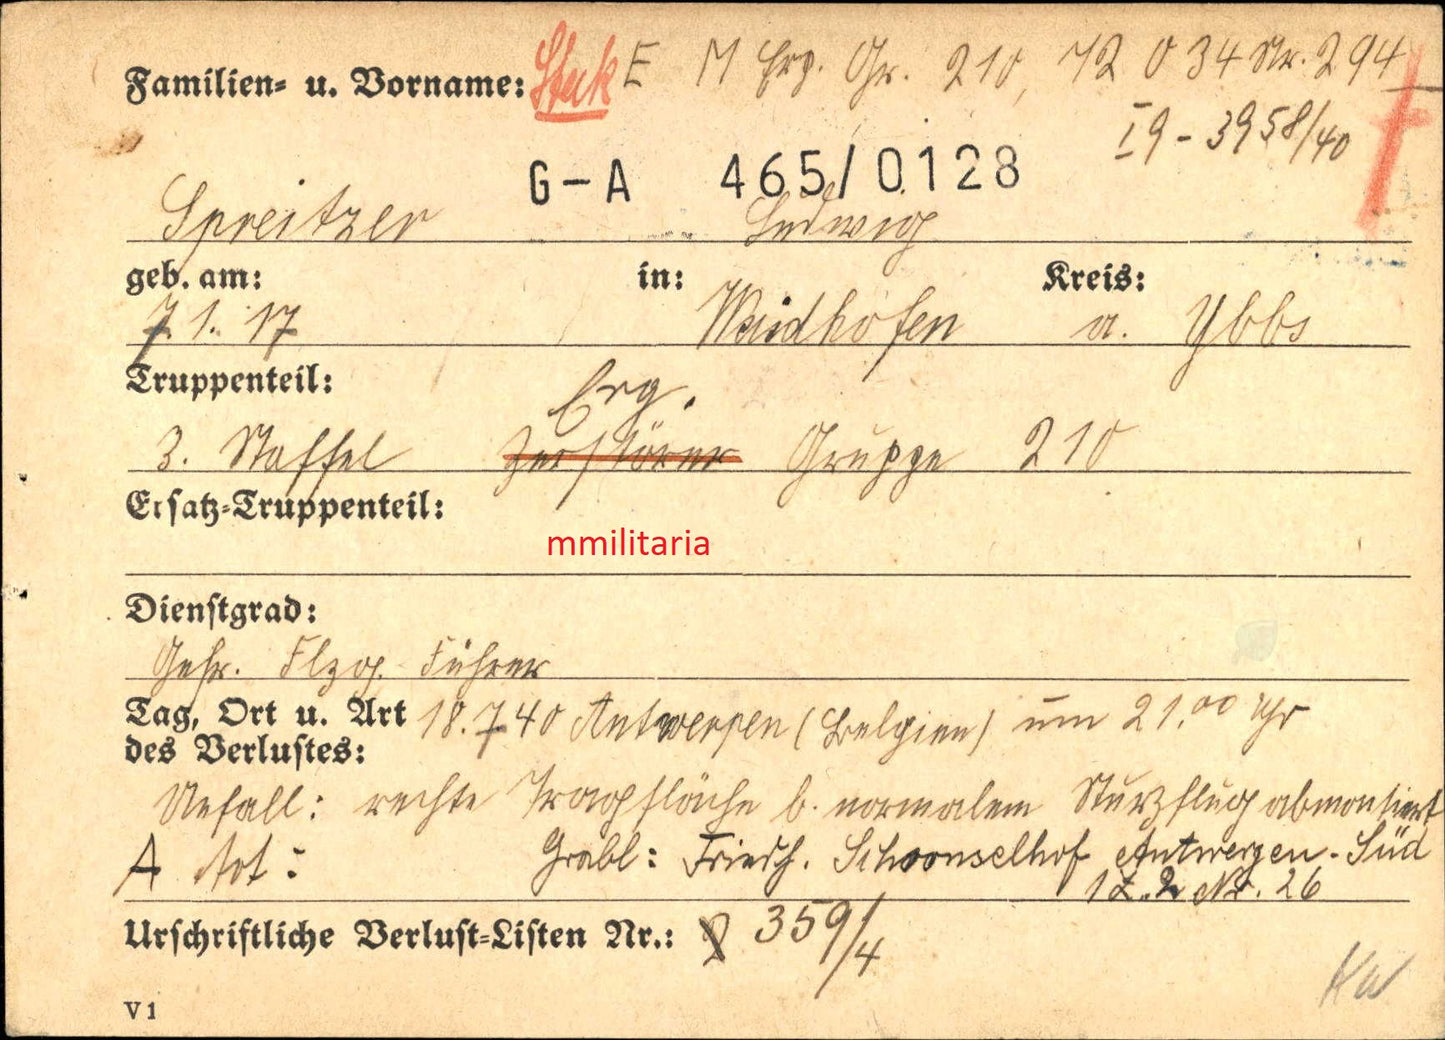 Familien- u. Vorname: Steck E M Erg. Gr. 210, 72 0 34 Nr. 294
I 9 - 3958/40
G-A 465/0128
Spreitzer Ludwig
geb. am: in: Kreis:
7. 1. 17 Waidhofen a. Ybbs
Truppenteil:
Erg.
3. Staffel Zerstörer Gruppe 210
Ersatz-Truppenteil:
mmilitaria
Dienstgrad:
Gefr. Flzg. Führer
Tag, Ort u. Art 18.7.40 Antwerpen (Belgien) um 21.00 Uhr
des Verlustes:
Unfall: rechte Tragfläche b. normalem Sturzflug abmontiert
A tot: Grabl: Friedh. Schoonselhof Antwerpen-Süd
Nr. 26
Urschriftliche Verlust-Listen Nr.: 359/4
V 1